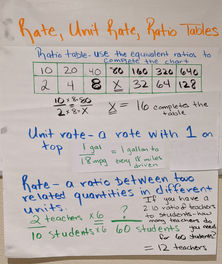 Rate, Unit Rate, Ratio Tables
Ratio table - use the equivalent ratios to
complete the chart
10 20 40 80 160 320 640
2 4 8 X 32 64 128
10 x 8 = 80
2 x 8 = X
X = 16 completes the
table
Unit rate - a rate with 1 on
top
1 gal = 1 gallon to
18 mpg every 18 miles
driven
Rate - a ratio between two
related quantities in different
units.
2 teachers x6 ?
10 students x6 60 students
If you have a
2:10 ratio of teachers
to students - how
many teachers do you
need
for 60 students?
= 12 teachers